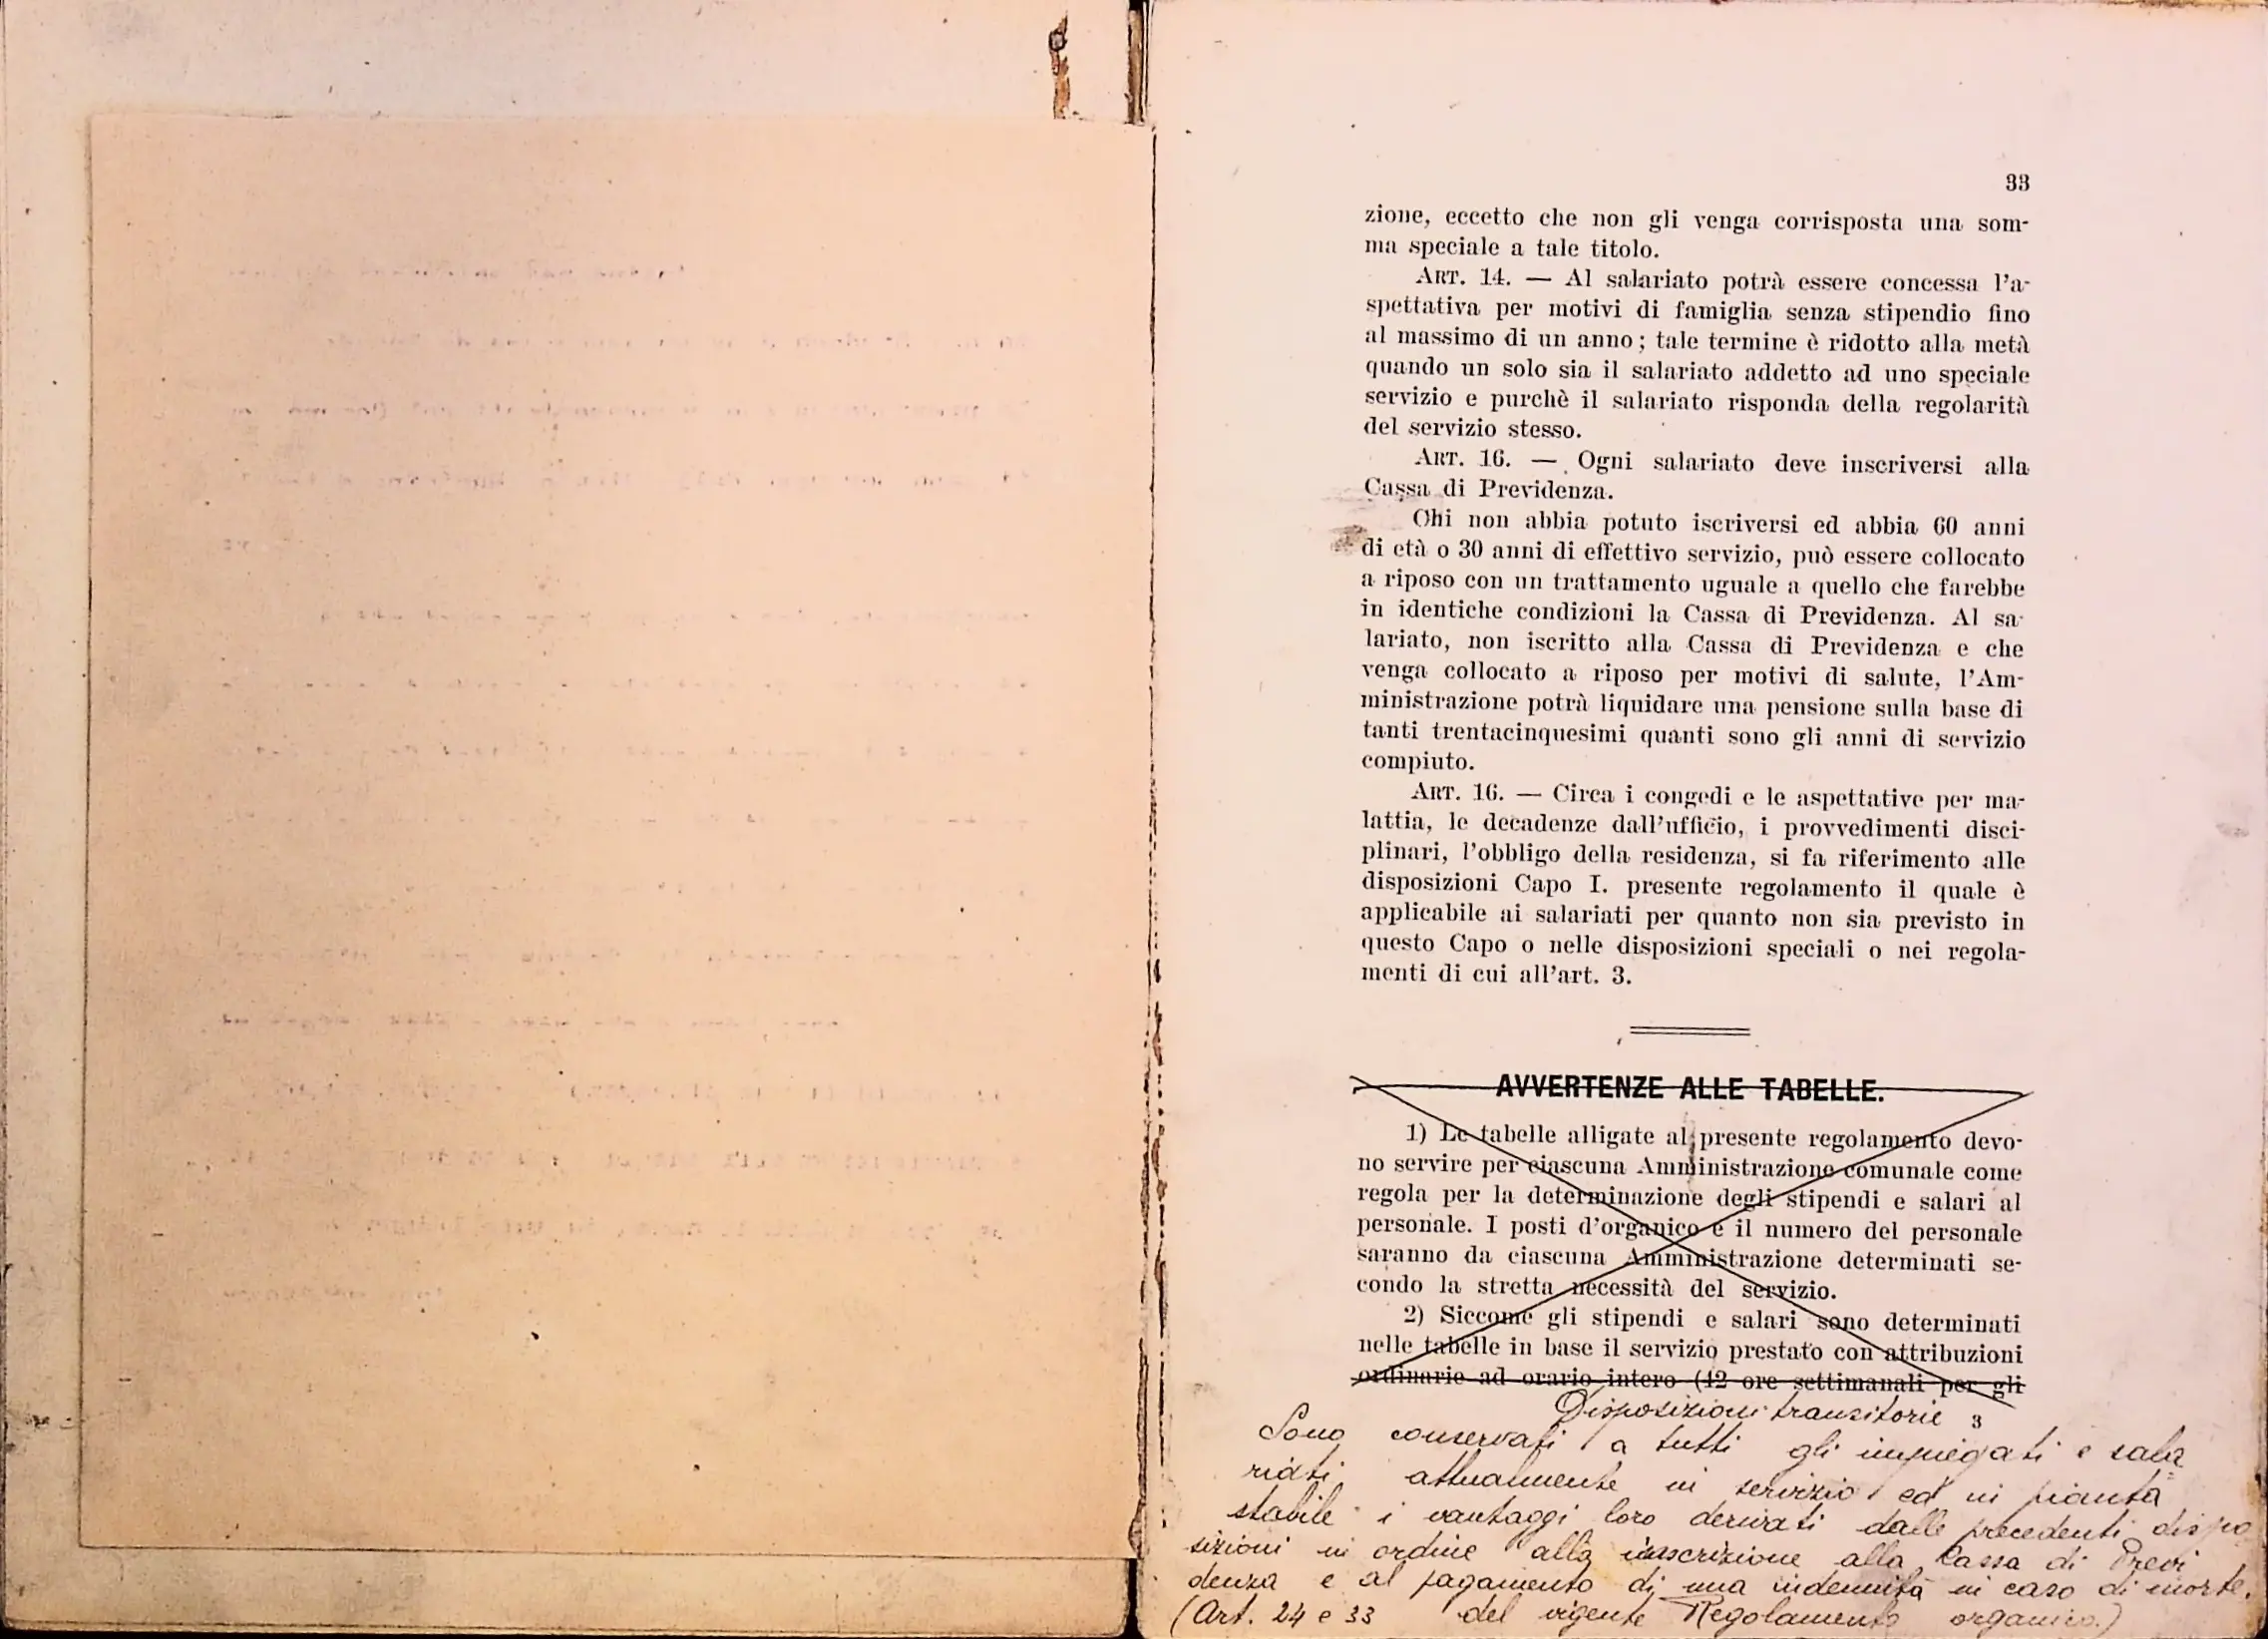 33
zione, eccetto che non gli venga corrisposta una som-
ma speciale a tale titolo.
ART. 14. — Al salariato potrà essere concessa l'a-
spettativa per motivi di famiglia senza stipendio fino
al massimo di un anno; tale termine è ridotto alla metà
quando un solo sia il salariato addetto ad uno speciale
servizio e purchè il salariato risponda della regolarità
del servizio stesso.
ART. 16. — Ogni salariato deve inscriversi alla
Cassa di Previdenza.
Chi non abbia potuto iscriversi ed abbia 60 anni
di età o 30 anni di effettivo servizio, può essere collocato
a riposo con un trattamento uguale a quello che farebbe
in identiche condizioni la Cassa di Previdenza. Al sa-
lariato, non iscritto alla Cassa di Previdenza e che
venga collocato a riposo per motivi di salute, l'Am-
ministrazione potrà liquidare una pensione sulla base di
tanti trentacinquesimi quanti sono gli anni di servizio
compiuto.
ART. 16. — Circa i congedi e le aspettative per ma-
lattia, le decadenze dall'ufficio, i provvedimenti disci-
plinari, l'obbligo della residenza, si fa riferimento alle
disposizioni Capo I. presente regolamento il quale è
applicabile ai salariati per quanto non sia previsto in
questo Capo o nelle disposizioni speciali o nei regola-
menti di cui all'art. 3.
AVVERTENZE ALLE TABELLE.
1) Le tabelle alligate al presente regolamento devo-
no servire per ciascuna Amministrazione comunale come
regola per la determinazione degli stipendi e salari al
personale. I posti d'organico e il numero del personale
saranno da ciascuna Amministrazione determinati se-
condo la stretta necessità del servizio.
2) Siccome gli stipendi e salari sono determinati
nelle tabelle in base il servizio prestato con attribuzioni
ordinarie ad orario intero (42 ore settimanali per gli
Disposizioni transitorie 3
Sono conservati a tutti gli impiegati e sala
riati, attualmente in servizio ed in pianta
stabile i vantaggi loro derivati dalle precedenti dispo
sizioni in ordine alla inscrizione alla Cassa di Previ
denza e al pagamento di una indennità in caso di morte.
(Art. 24 e 33 del vigente Regolamento organico.)